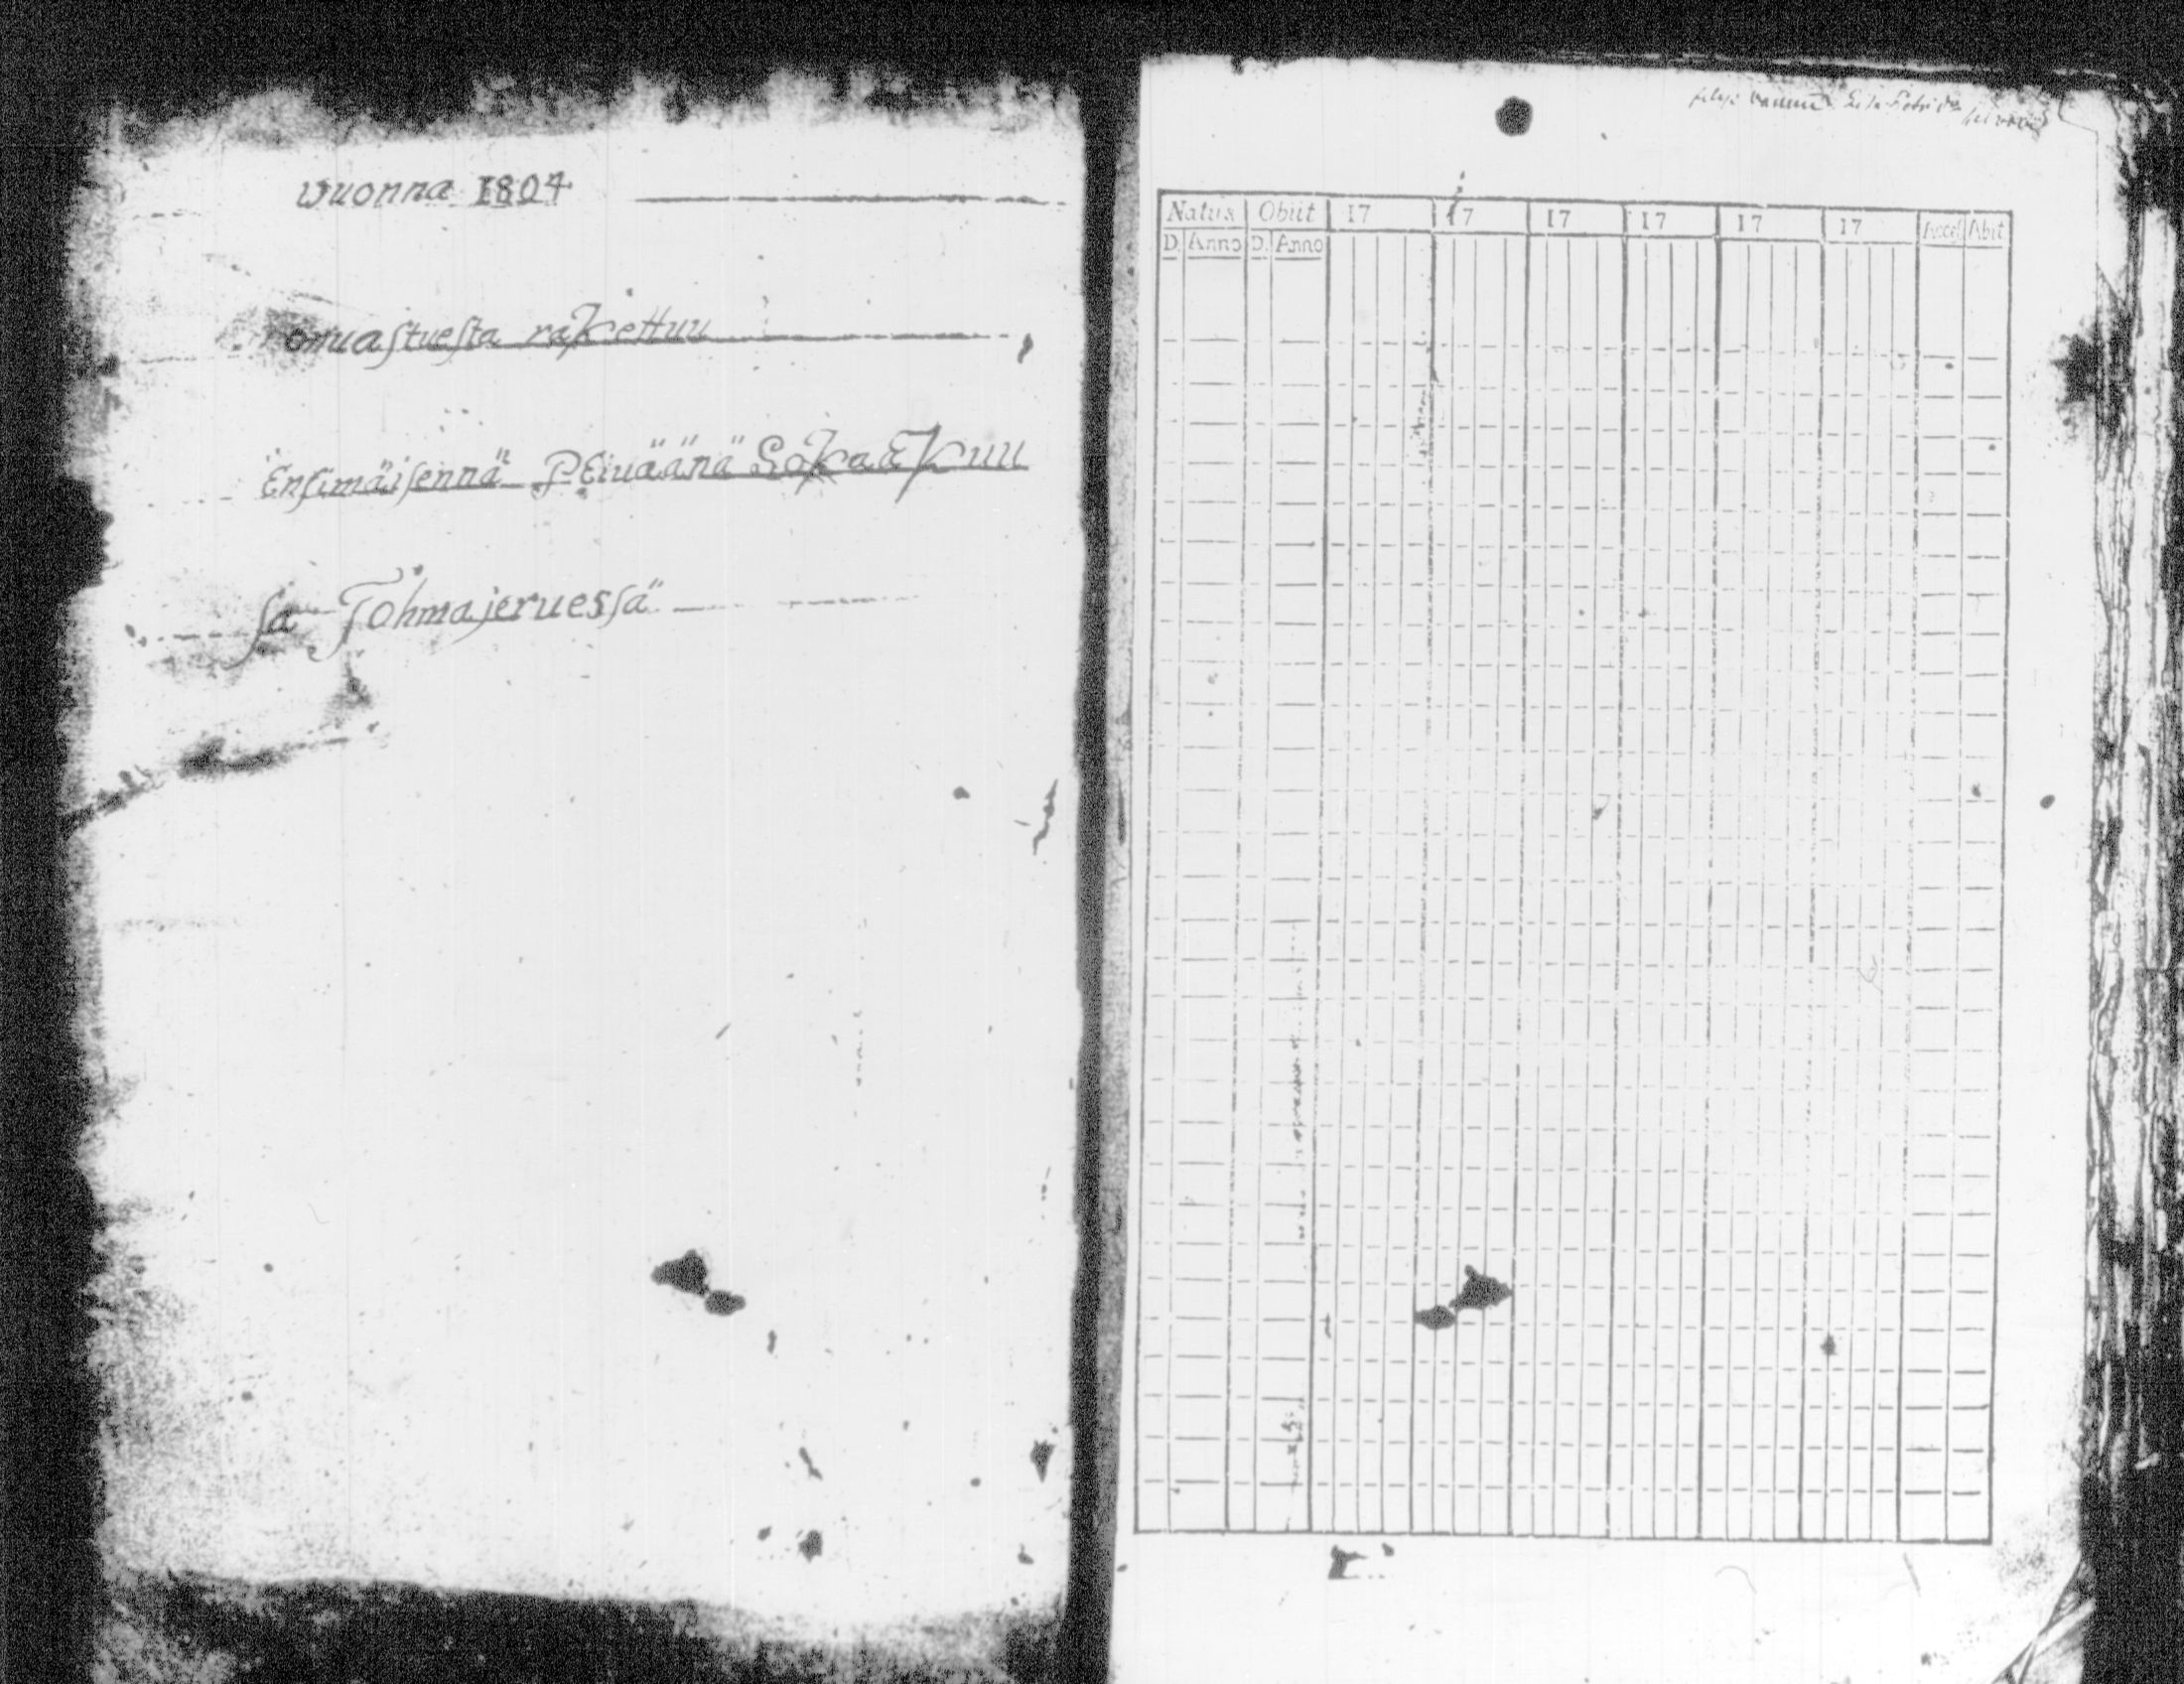 wuonna 1804
omuastuesta rakettuu
Ensimäisennä Peiuäänä LoKaEKuu
sa Tohmajeruessä
Natus Obiit 17 17 17 17 17 17 Acces Abit
D. Anno D. Anno